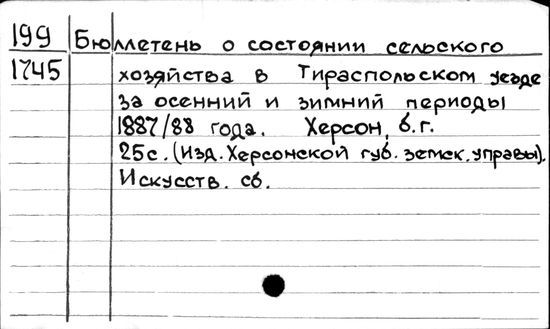 199 Бюллетень о состоянии сельского
1745 хозяйства в Тираспольском уезде
за осенний и зимний периоды
1887/88 года. Херсон, б.г.
25с. (Изд. Херсонской губ. земск. управы).
Искусств. сб.